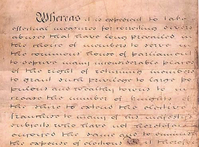 Whereas it is expedient to take
effectual measures for correcting divers
abuses that have long prevailed in
the choice of members to serve
the commons house of parliament
to deprive many inconsiderable places
of the right of returning members
to grant such privilege to large po
pulous and wealthy towns to in
crease the number of knights
the shire to extend the elective
franchise to many of his majesty's
subjects who have not heretofore
enjoyed the same and to diminish
the expense of elections